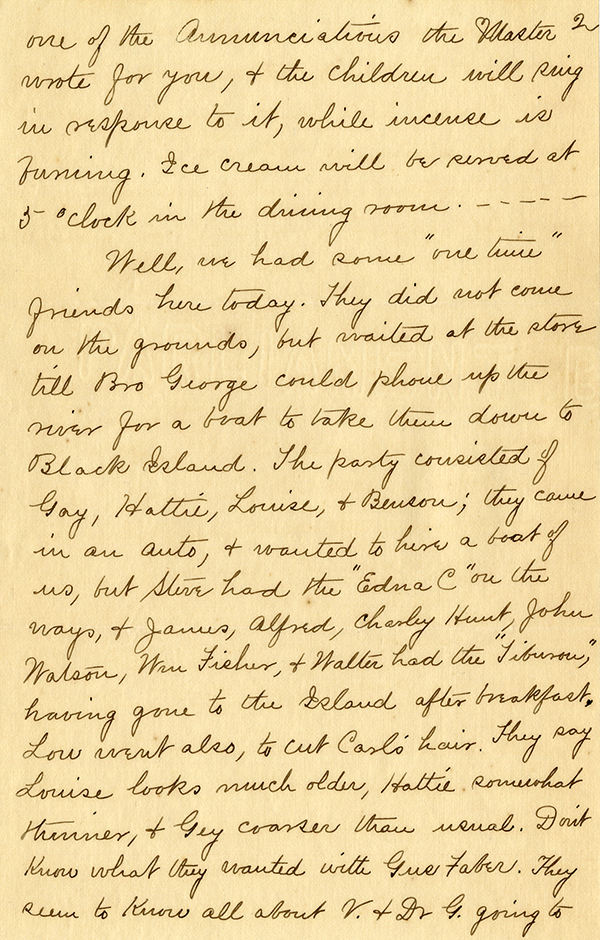 2
one of the Annunciations the Master
wrote for you, & the children will sing
in response to it, while incense is
burning. Ice cream will be served at
5 o'clock in the dining room. - - - - -
Well, we had some "one time"
friends here today. They did not come
on the grounds, but waited at the store
till Bro George could phone up the
river for a boat to take them down to
Black Island. The party consisted of
Gay, Hattie, Louise, & Benson; they came
in an auto, & wanted to hire a boat of
us, but Steve had the "Edna C" on the
ways, & James, Alfred, Charley Hunt, John
Watson, Wm Fisher, & Walter had the "Tiburon,"
having gone to the Island after breakfast.
Lou went also, to cut Carl's hair. They say
Louise looks much older, Hattie somewhat
thinner, & Gey coarser than usual. Don't
know what they wanted with Gus Faber. They
seem to know all about V. & Dr G. going to